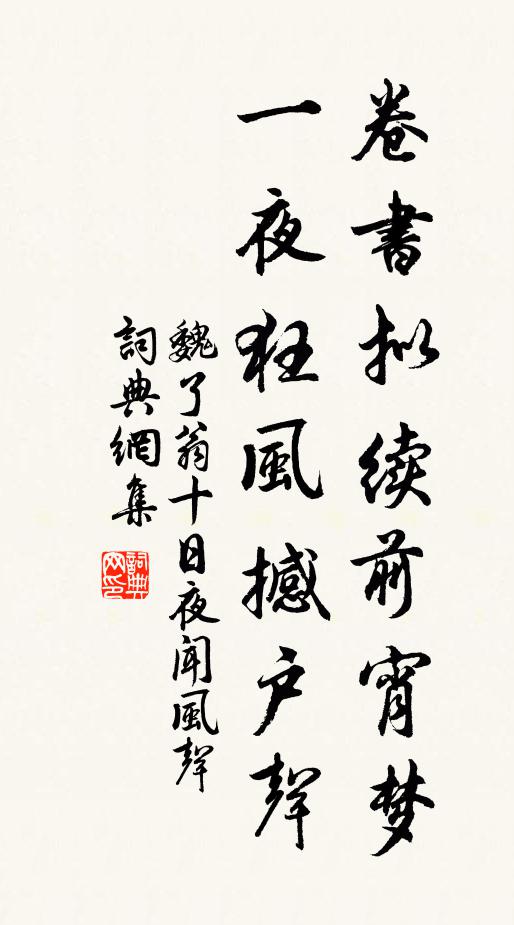 卷書拟续前宵梦
一夜狂風撼户聲
魏了翁十日夜聞風聲
詞典網集
詞典网印